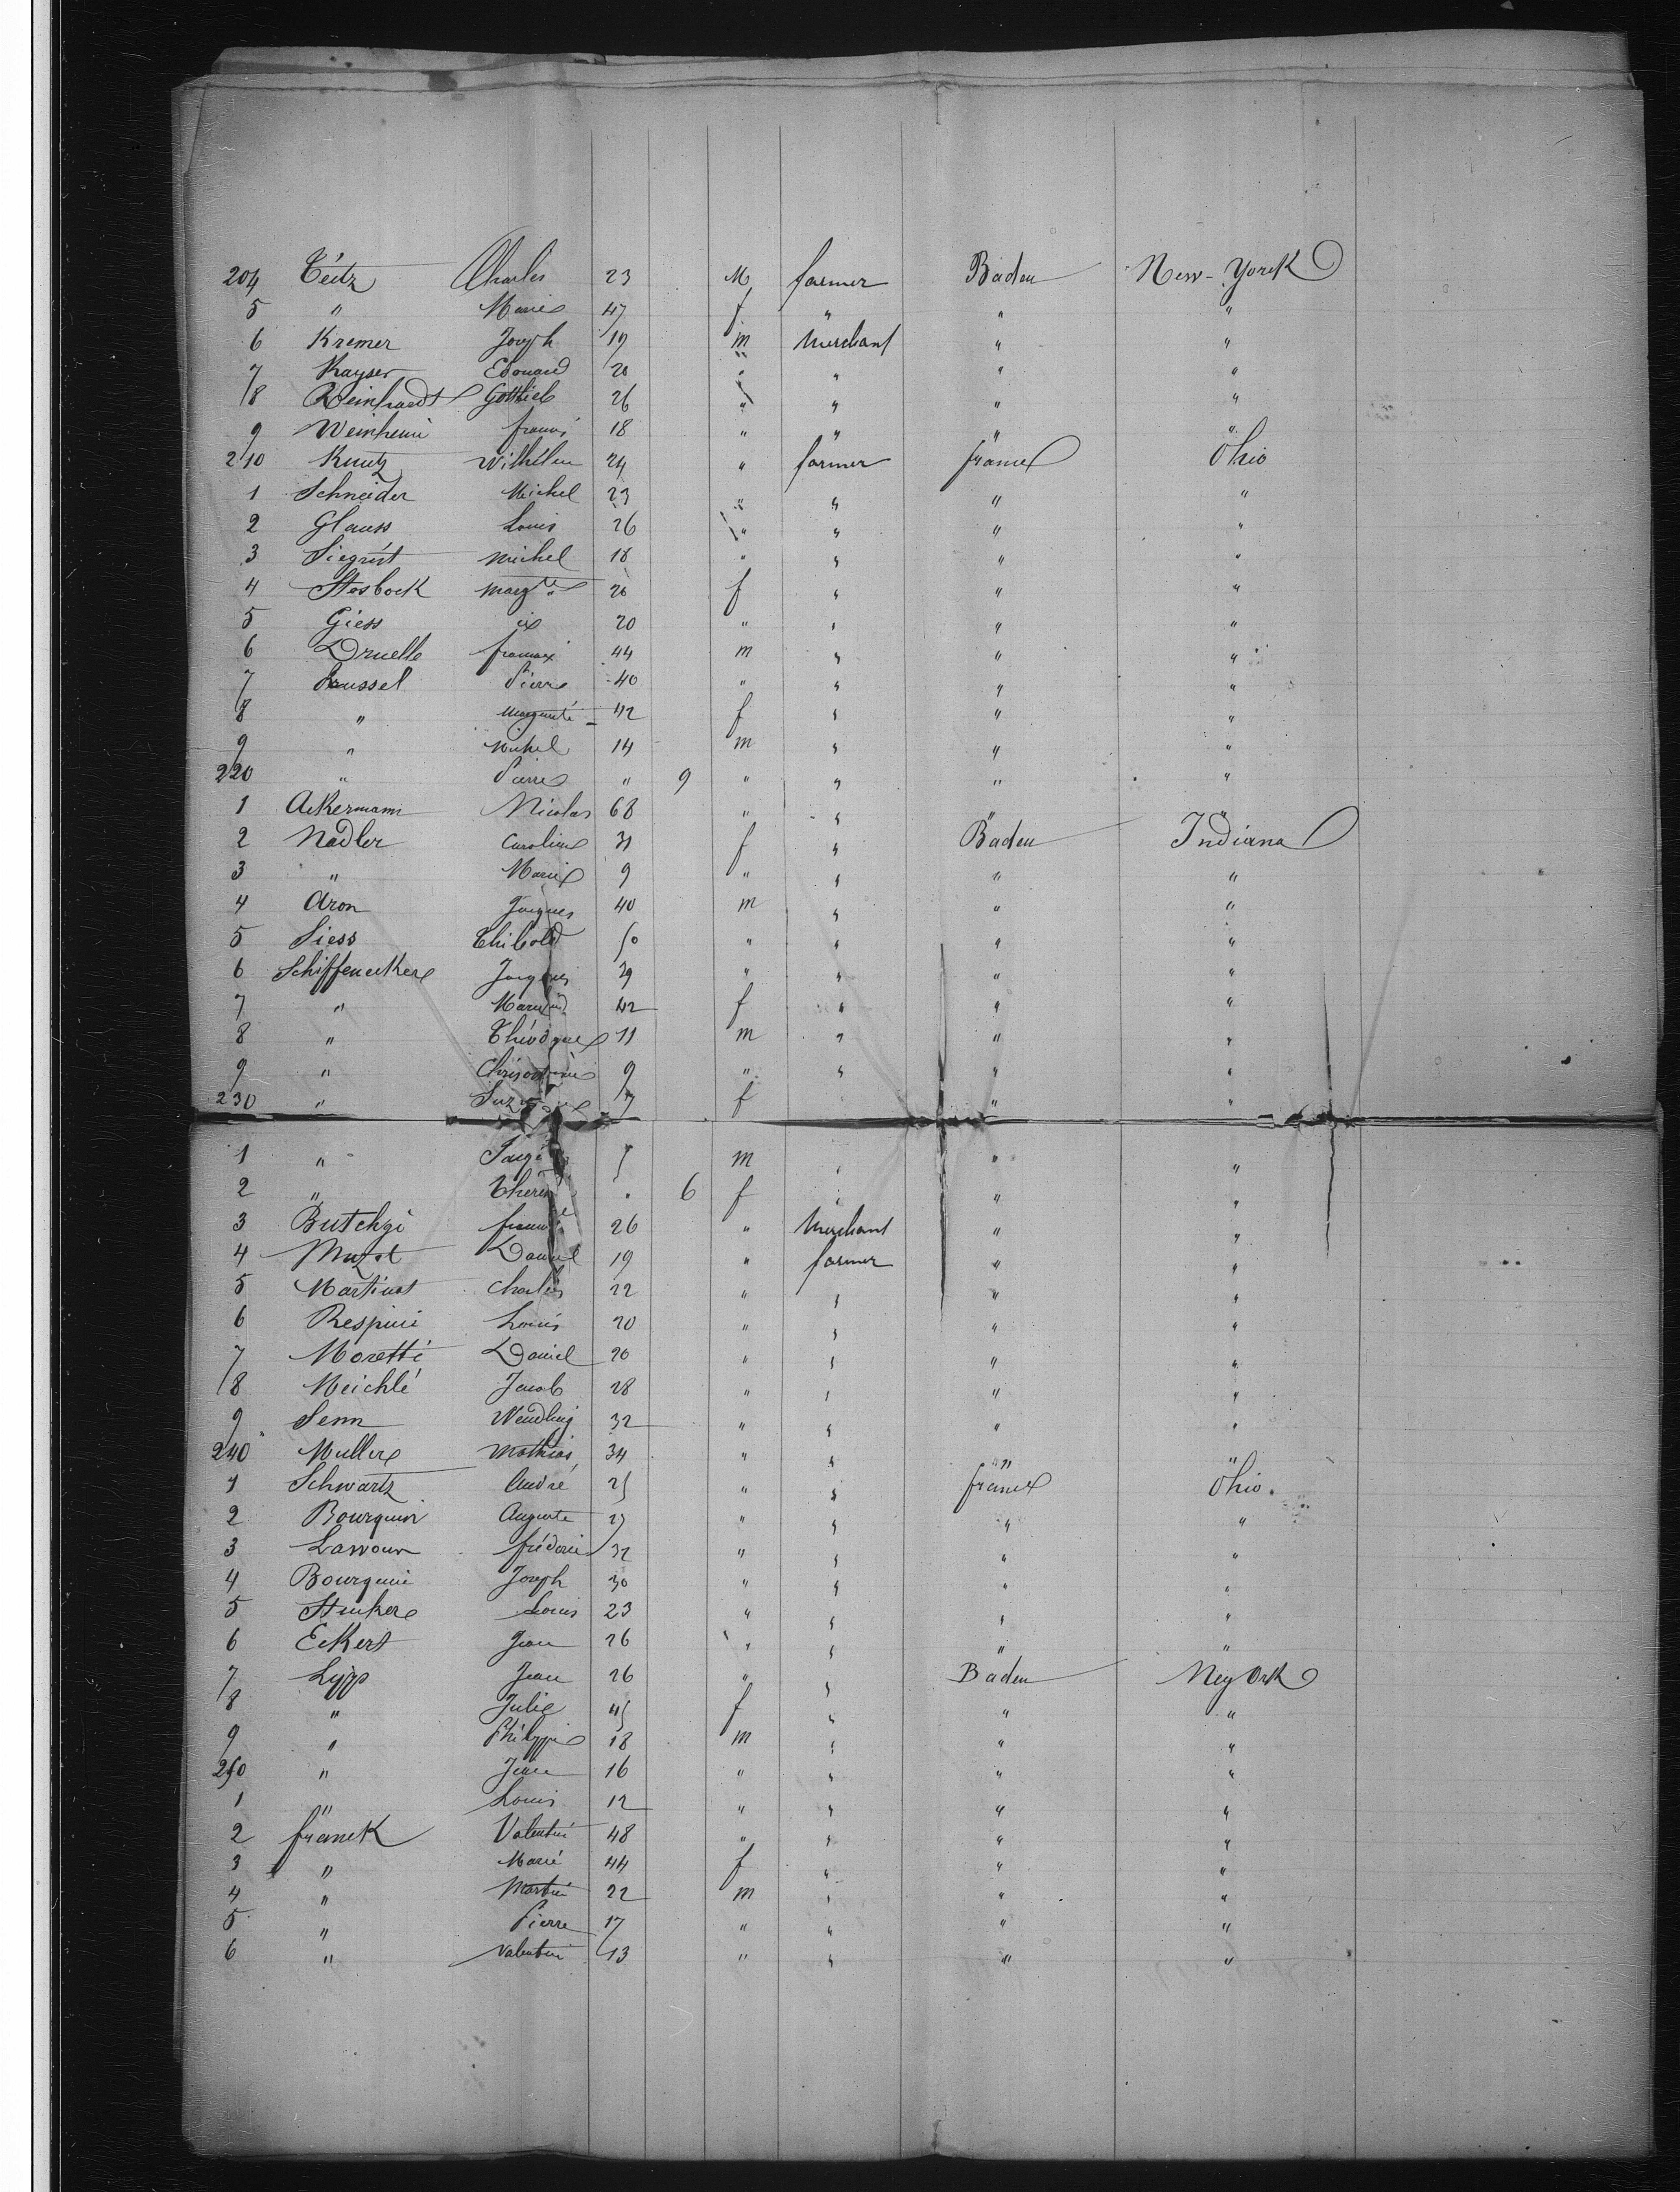 204 Teitz Charles 23 M farmer Baden New-Yorck
5 " Marie 47 f " " "
6 Kremer Joseph 19 m Merchant " "
7 Kayser Edouard 20 " " " "
8 Reinhardt Gottlieb 26 " " " "
9 Weinheim 18 " " " "
210 Kuntz Wilhélm 24 " farmer france Ohio
1 Schneider Michel 23 " " " "
2 Glauss Louis 26 " " " "
3 Siegrist Michel 18 " " " "
4 Stosbock Margte 26 f " " "
5 Giess 20 " " " "
6 Druelle 44 m " " "
7 Pierre 40 " " " "
8 " Marguerite 42 f " " "
9 " Michel 14 m " " "
220 " Pierre " 9 " " " "
1 Ackermann Nicolas 68 " " " "
2 Nadler Caroline 31 f " Baden Indiana
3 " Marie 9 " " " "
4 Aron Jacques 40 m " " "
5 Siess Thibold 50 " " " "
6 Schiffeneckere Jacques 39 " " " "
7 " 42 f " " "
8 " Théodore 11 m " " "
9 " 9 " " " "
230 " 7 f " "
1 " 5 m " " "
2 " " 6 f " " "
3 Butchgi 26 " Merchant " "
4 Daniel 19 " farmer " "
5 Martinot Charles 22 " " " "
6 Respini Louis 20 " " " "
7 Moretti Daniel 20 " " " "
8 Meichlé Jacob 28 " " " "
9 Senn Wendling 32 " " " "
240 Mullere Mathias 34 " " " "
1 Schwartz André 25 " " france Ohio.
2 Bourquin Auguste 23 " " " "
3 frédéric 32 " " " "
4 Bourquin Joseph 30 " " " "
5 Louis 23 " " " "
6 Eckert Jean 26 " " " "
7 Lipp Jean 26 " " Baden Neyork
8 " Julie 45 f " " "
9 " Philippe 18 m " " "
250 " Jean 16 " " " "
1 " Louis 12 " " " "
2 franck Valentin 48 " " " "
3 " Marie 44 f " " "
4 " Martin 22 m " " "
5 " Pierre 17 " " " "
6 " Valentin 13 " " " "